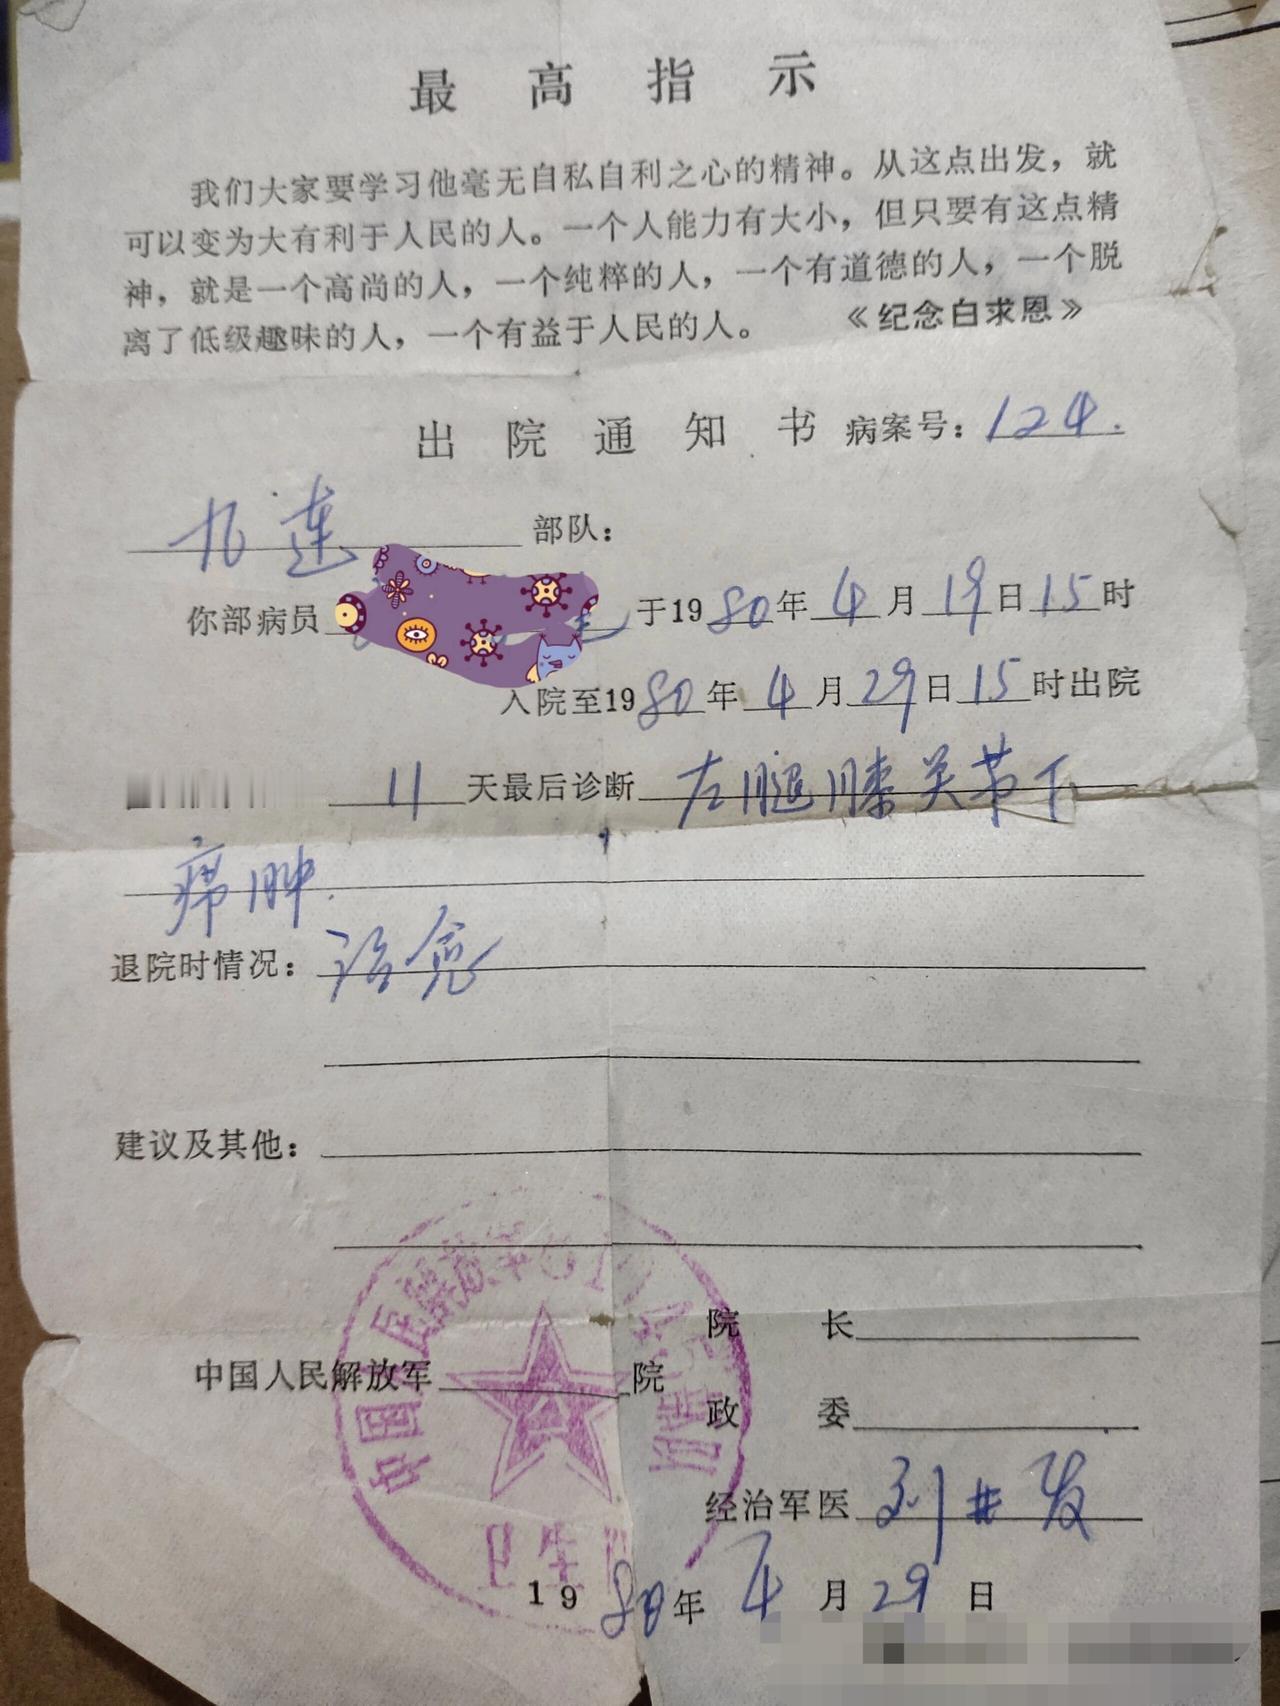 最高指示
我们大家要学习他毫无自私自利之心的精神。从这点出发，就
可以变为大有利于人民的人。一个人能力有大小，但只要有这点精
神，就是一个高尚的人，一个纯粹的人，一个有道德的人，一个脱
离了低级趣味的人，一个有益于人民的人。 《纪念白求恩》
出院通知书 病案号：124.
九连 部队：
你部病员 于1980年4月19日15时
入院至1980年4月29日15时出院
11天最后诊断 左腿膝关节下
痈肿.
退院时情况：治愈
建议及其他：
中国人民解放军
院长
中国人民解放军 院
政委
经治军医 刘井发
卫生
1980年4月29日